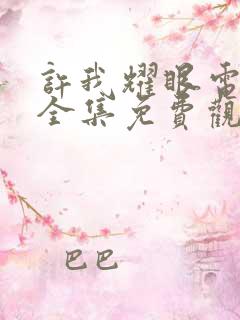 許我耀眼電
全集免費觀
巴巴